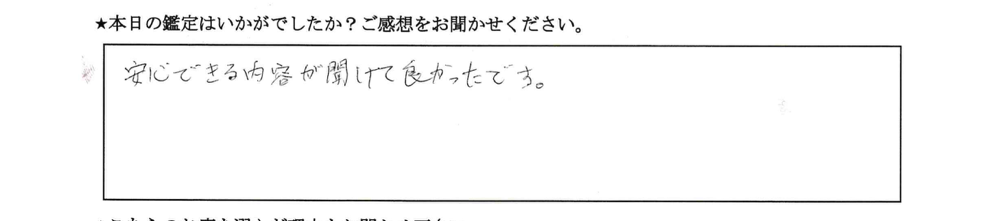 ★本日の鑑定はいかがでしたか？ご感想をお聞かせください。
安心できる内容が聞けて良かったです。